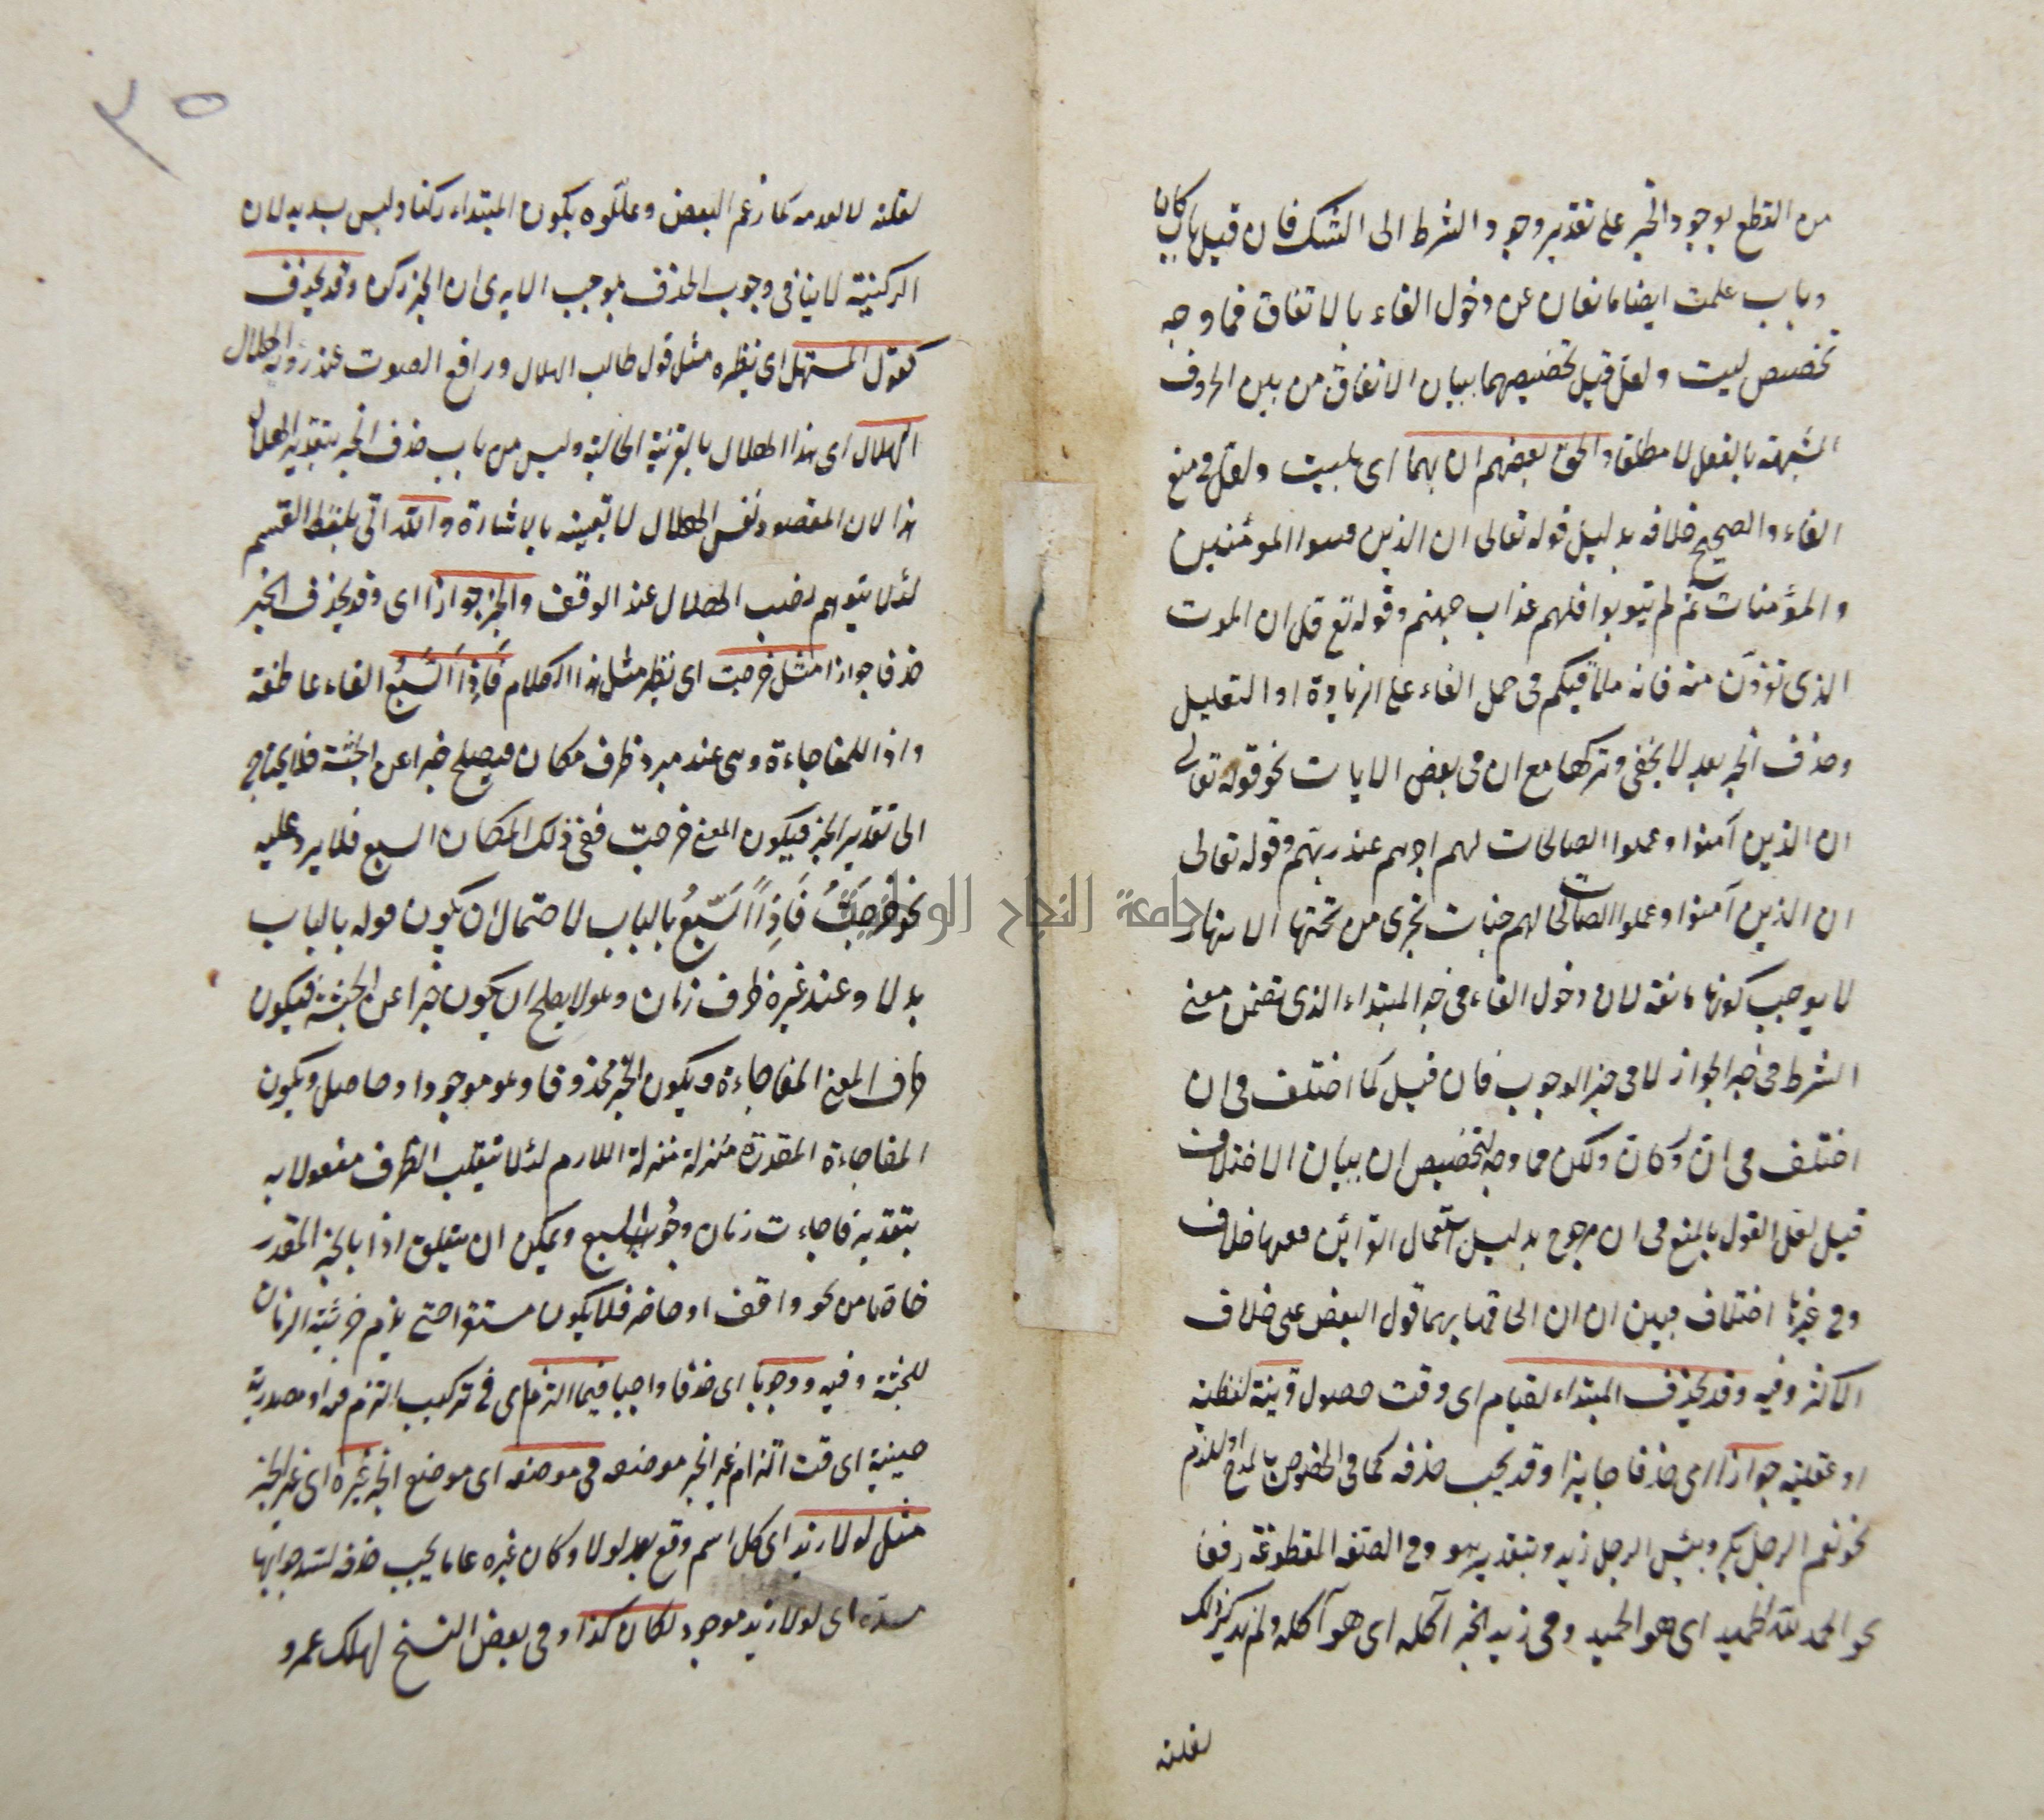 من القطع بوجود الخبر على تقدير وجود الشرط الى الشك فان قيل باب كان
وباب علمت ايضا مانعان عن دخول الفاء بالاتفاق فما وجه
تخصيص ليت ولعل قيل تخصيصهما ببيان الاتفاق من بين الحروف
المشبهة بالفعل لا مطلقا والحق بعضهم ان بهما اى بليت ولعل فى منع
الفاء والصحيح خلافه بدليل قوله تعالى ان الذين فتنوا المؤمنين
والمؤمنات ثم لم يتوبوا فلهم عذاب جهنم وقوله تع قل ان الموت
الذى تفرون منه فانه ملاقيكم فى حمل الفاء على الزيادة او التعليل
وحذف الخبر بعد لا يخفى وتركها مع ان فى بعض الايات نحو قوله تعالى
ان الذين آمنوا وعملوا الصالحات لهم اجرهم عند ربهم وقوله تعالى
ان الذين آمنوا وعملوا الصالحات لهم جنات تجرى من تحتها الانهار
لا يوجب كونها مانعة لان دخول الفاء فى خبر المبتداء الذى تضمن معنى
الشرط فى خبر الجواز لا فى خبر الوجوب فان قيل كما اختلف فى ان
اختلف فى ان وكان ولكن فما وجه تخصيص ان ببيان الاختلاف
قيل لعل القول بالمنع فى ان مرجوح بدليل استعمال القرائن فعدها خلاف
وفى غيرها اختلاف فبين ان ان الحاقها بهما قول البعض على خلاف
الاكثر وفيه وقد يحذف المبتداء لقيام اى وقت حصول قرينة لفظية
او عقلية جوازا اى حذفا جايزا وقد يجب حذفه كما فى المخصوص بالمدح او الذم
نحو نعم الرجل بكر وبئس الرجل زيد وبتقدير هو وفى الصفة المقطوعة رفعا
نحو الحمد لله الحميد اى هو الحميد وفى زيد الخبر آكله اى هو آكله ولم يذكر ذلك
لقلته
٣٥
لقلته لا لعدمه كما زعم البعض وعللوه بكون المبتداء ركنا وليس بسديد لان
الركنية لا ينافى وجوب الحذف بموجب الا يرى ان الخبر ركن وقد يحذف
كقول المستهل اى نظيره مثل قول طالب الهلال ورافع الصوت عند رؤية الهلال
الهلال اى هذا الهلال بالقرينة الحالية وليس من باب حذف الخبر بتقدير الهلال
هذا لان المقصود نفس الهلال لا تعيينه بالاشارة والله اتى بلفظ القسم
لئلا يتوهم نصب الهلال عند الوقف والخبر جوازا اى وقد يحذف الخبر
حذفا جوازا مثل خرجت اى نظير مثل هذا الكلام فاذا السبع الفاء عاطفة
واذا للمفاجاءة وهى عند مبرد ظرف مكان فيصلح خبرا عن الجثة فلا يحتاج
الى تقدير الخبر فيكون المعنى خرجت ففى ذلك المكان السبع فلا يرد عليه
نحو خرجت فاذا السبع بالباب لاحتمال ان يكون قوله بالباب
بدلا وعند غيره ظرف زمان وهو لا يصلح ان يكون خبرا عن الجثة فيكون
ظرف المعنى المفاجاءة ويكون الخبر محذوفا وهو موجودا وحاصل ويكون
المفاجاءة المقدرة منزلة منزلة اللازم لئلا ينقلب الظرف مفعولا به
بتقدير فاجاءت زمان وجود السبع ويمكن ان يتعلق اذا بالخبر المقدر
خاصا من نحو واقف او حاضر فلا يكون مستقرا حتى يلزم خبرية الزمان
للجثة وفيه ووجوبا اى حذفا واجبا فيما التزم اى فى تركيب التزم فيه او مصدرية
حينية اى وقت التزام غير الخبر موضعه فى موضعه اى موضع الخبر غيره اى غير الخبر
مثل لولا زيد اى كل اسم وقع بعد لولا وكان خبره عاما يجب حذفه لسد جوابها
مسده اى لولا زيد موجود لكان كذا وفى بعض النسخ لهلك عمرو
جامعة النجاح الوطنية